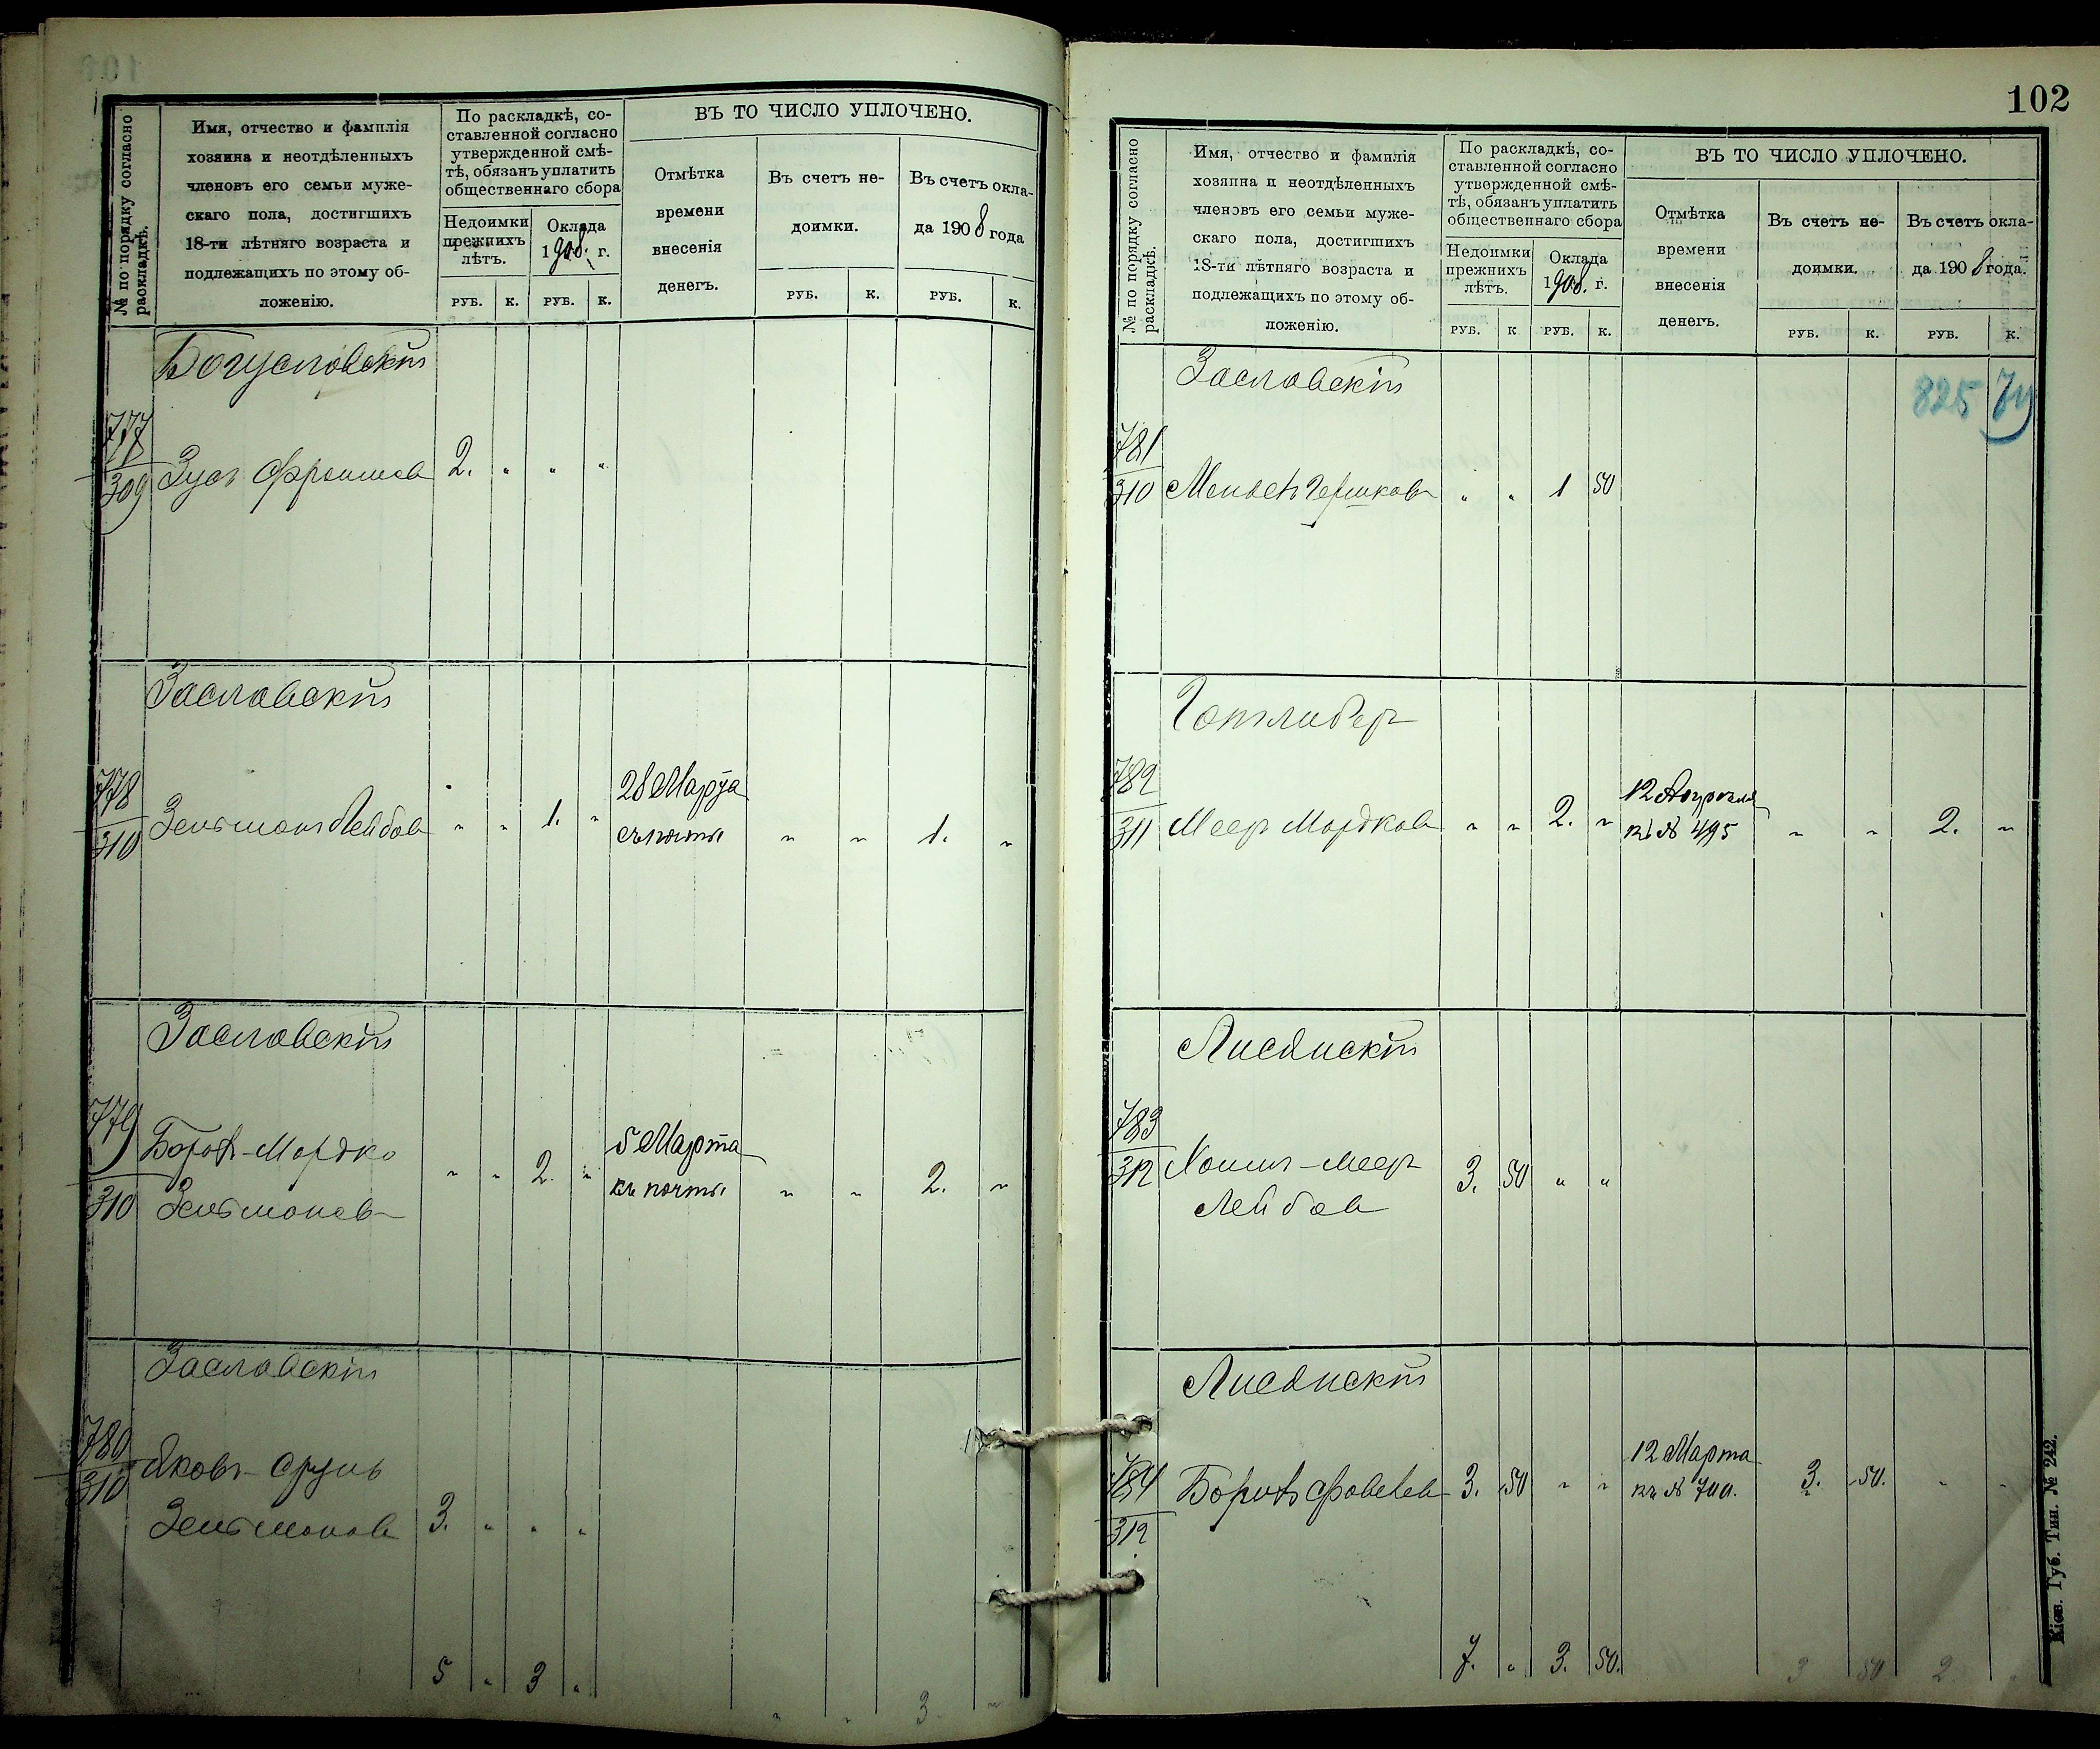 № по порядку согласно
раскладкѣ.
Имя, отчество и фамилія
хозяина и неотдѣленныхъ
членовъ его семьи муже-
скаго пола, достигшихъ
18-ти лѣтняго возраста и
подлежащихъ по этому об-
ложенію.
По раскладкѣ, со-
ставленной согласно
утвержденной смѣ-
тѣ, обязанъ уплатить
общественнаго сбора
Недоимки
прежнихъ
лѣтъ.
Оклада
1908 г.
РУБ. К. РУБ. К.
ВЪ ТО ЧИСЛО УПЛОЧЕНО.
Отмѣтка
времени
внесенія
денегъ.
Въ счетъ не-
доимки.
РУБ. К.
Въ счетъ окла-
да 1908 года
РУБ. К.
Богуславскій
777
309 Зусь 2. " " "
Заславскій
778 28 Марта
310 Зельманъ Лейбов " " 1. " " " 1. "
Заславскій
779 Борох-Мордко " " 2. " 5 Марта
310 Зельманов къ почты " " 2. "
Заславскій
780
310 Яковъ-Сруль
Зельманов 3. " " "
5 " 3 "
" " 3. "
102
№ по порядку согласно
раскладкѣ.
Имя, отчество и фамилія
хозяина и неотдѣленныхъ
членовъ его семьи муже-
скаго пола, достигшихъ
18-ти лѣтняго возраста и
подлежащихъ по этому об-
ложенію.
По раскладкѣ, со-
ставленной согласно
утвержденной смѣ-
тѣ, обязанъ уплатить
общественнаго сбора
Недоимки
прежнихъ
лѣтъ.
Оклада
1908. г.
РУБ. К РУБ. К.
ВЪ ТО ЧИСЛО УПЛОЧЕНО.
Отмѣтка
времени
внесенія
денегъ.
Въ счетъ не-
доимки.
РУБ. К.
Въ счетъ окла-
да 1908 года.
РУБ. К.
Заславскій
825
781
310 Гершков " " 1 50
Готлибер
782 12 Апрѣля
311 Меер Мордков " " 2. " къ № 495 " " 2. "
Лисянскій
783
312 Меер 3. 50 " "
Лейбов
Лисянскій
784 12 Марта
312 Борох 3. 50 " " къ № 700. 3. 50. " "
7. " 3. 50.
3 50 2
Кіев. Губ. Тип. № 242.